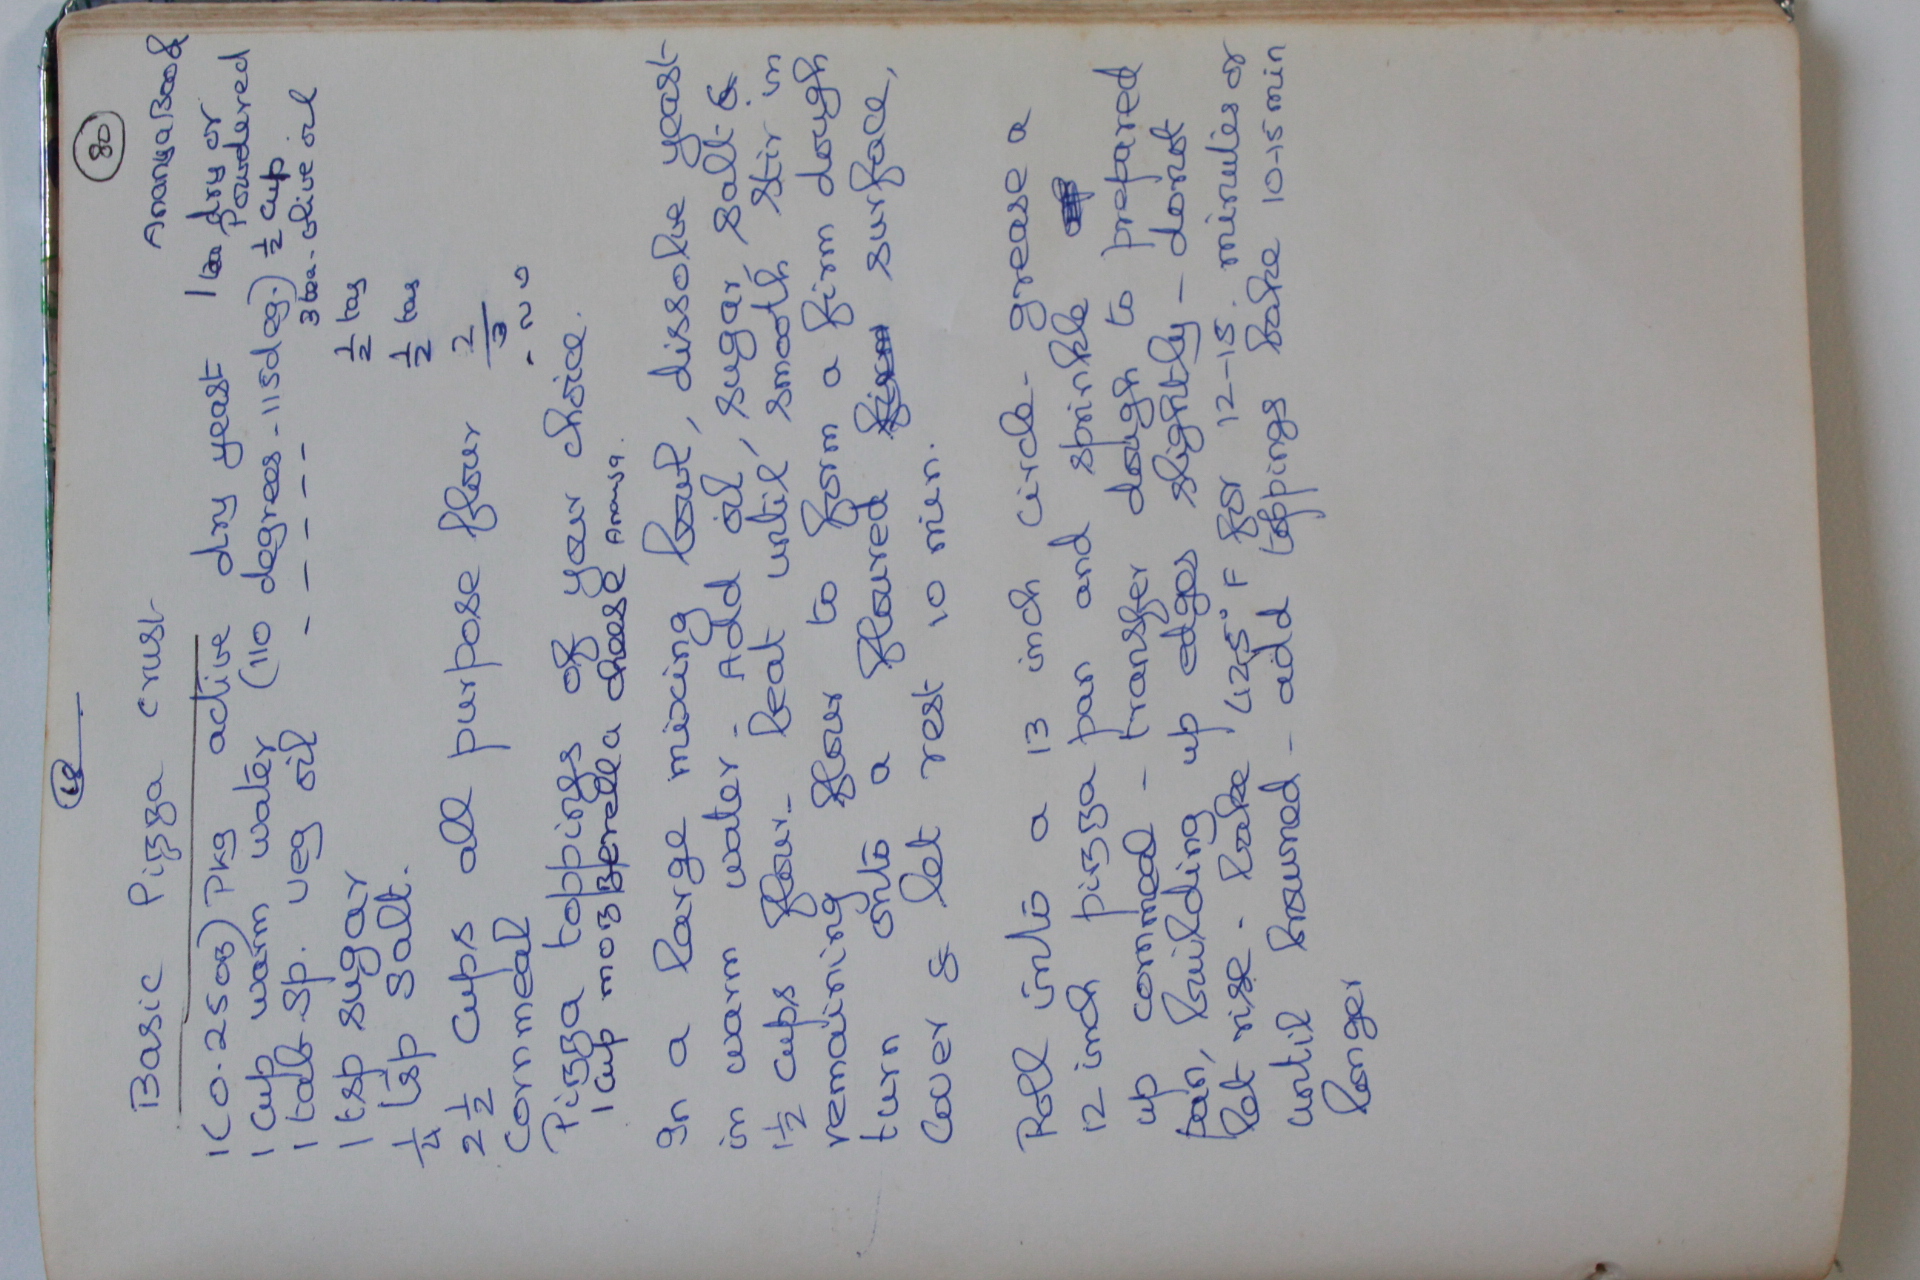 80
Basic Pizza crust
Ananya Book
1 (0.25oz) Pkg active dry yeast 1 tea dry or Powdered
1 cup warm water (110 degrees - 115 deg.) ½ cup
1 tabl. sp. veg oil - - - - - - 3 tea. olive oil
1 tsp sugar ½ tas
¼ tsp salt. ½ tas
2 ½ cups all purpose flour 2/3
cornmeal
Pizza toppings of your choice.
1 cup mozzerella cheese
In a large mixing bowl, dissolve yeast
in warm water. Add oil, sugar, salt &
1½ cups flour. beat until smooth, stir in
remaining flour to form a firm dough
turn onto a floured surface,
Cover & let rest 10 min.
Roll into a 13 inch circle - grease a
12 inch pizza pan and sprinkle
up cornmeal - transfer dough to prepared
pan, building up edges slightly - donot
let rise. bake 425° F for 12-15. minutes or
until browned - add toppings bake 10-15 min
longer